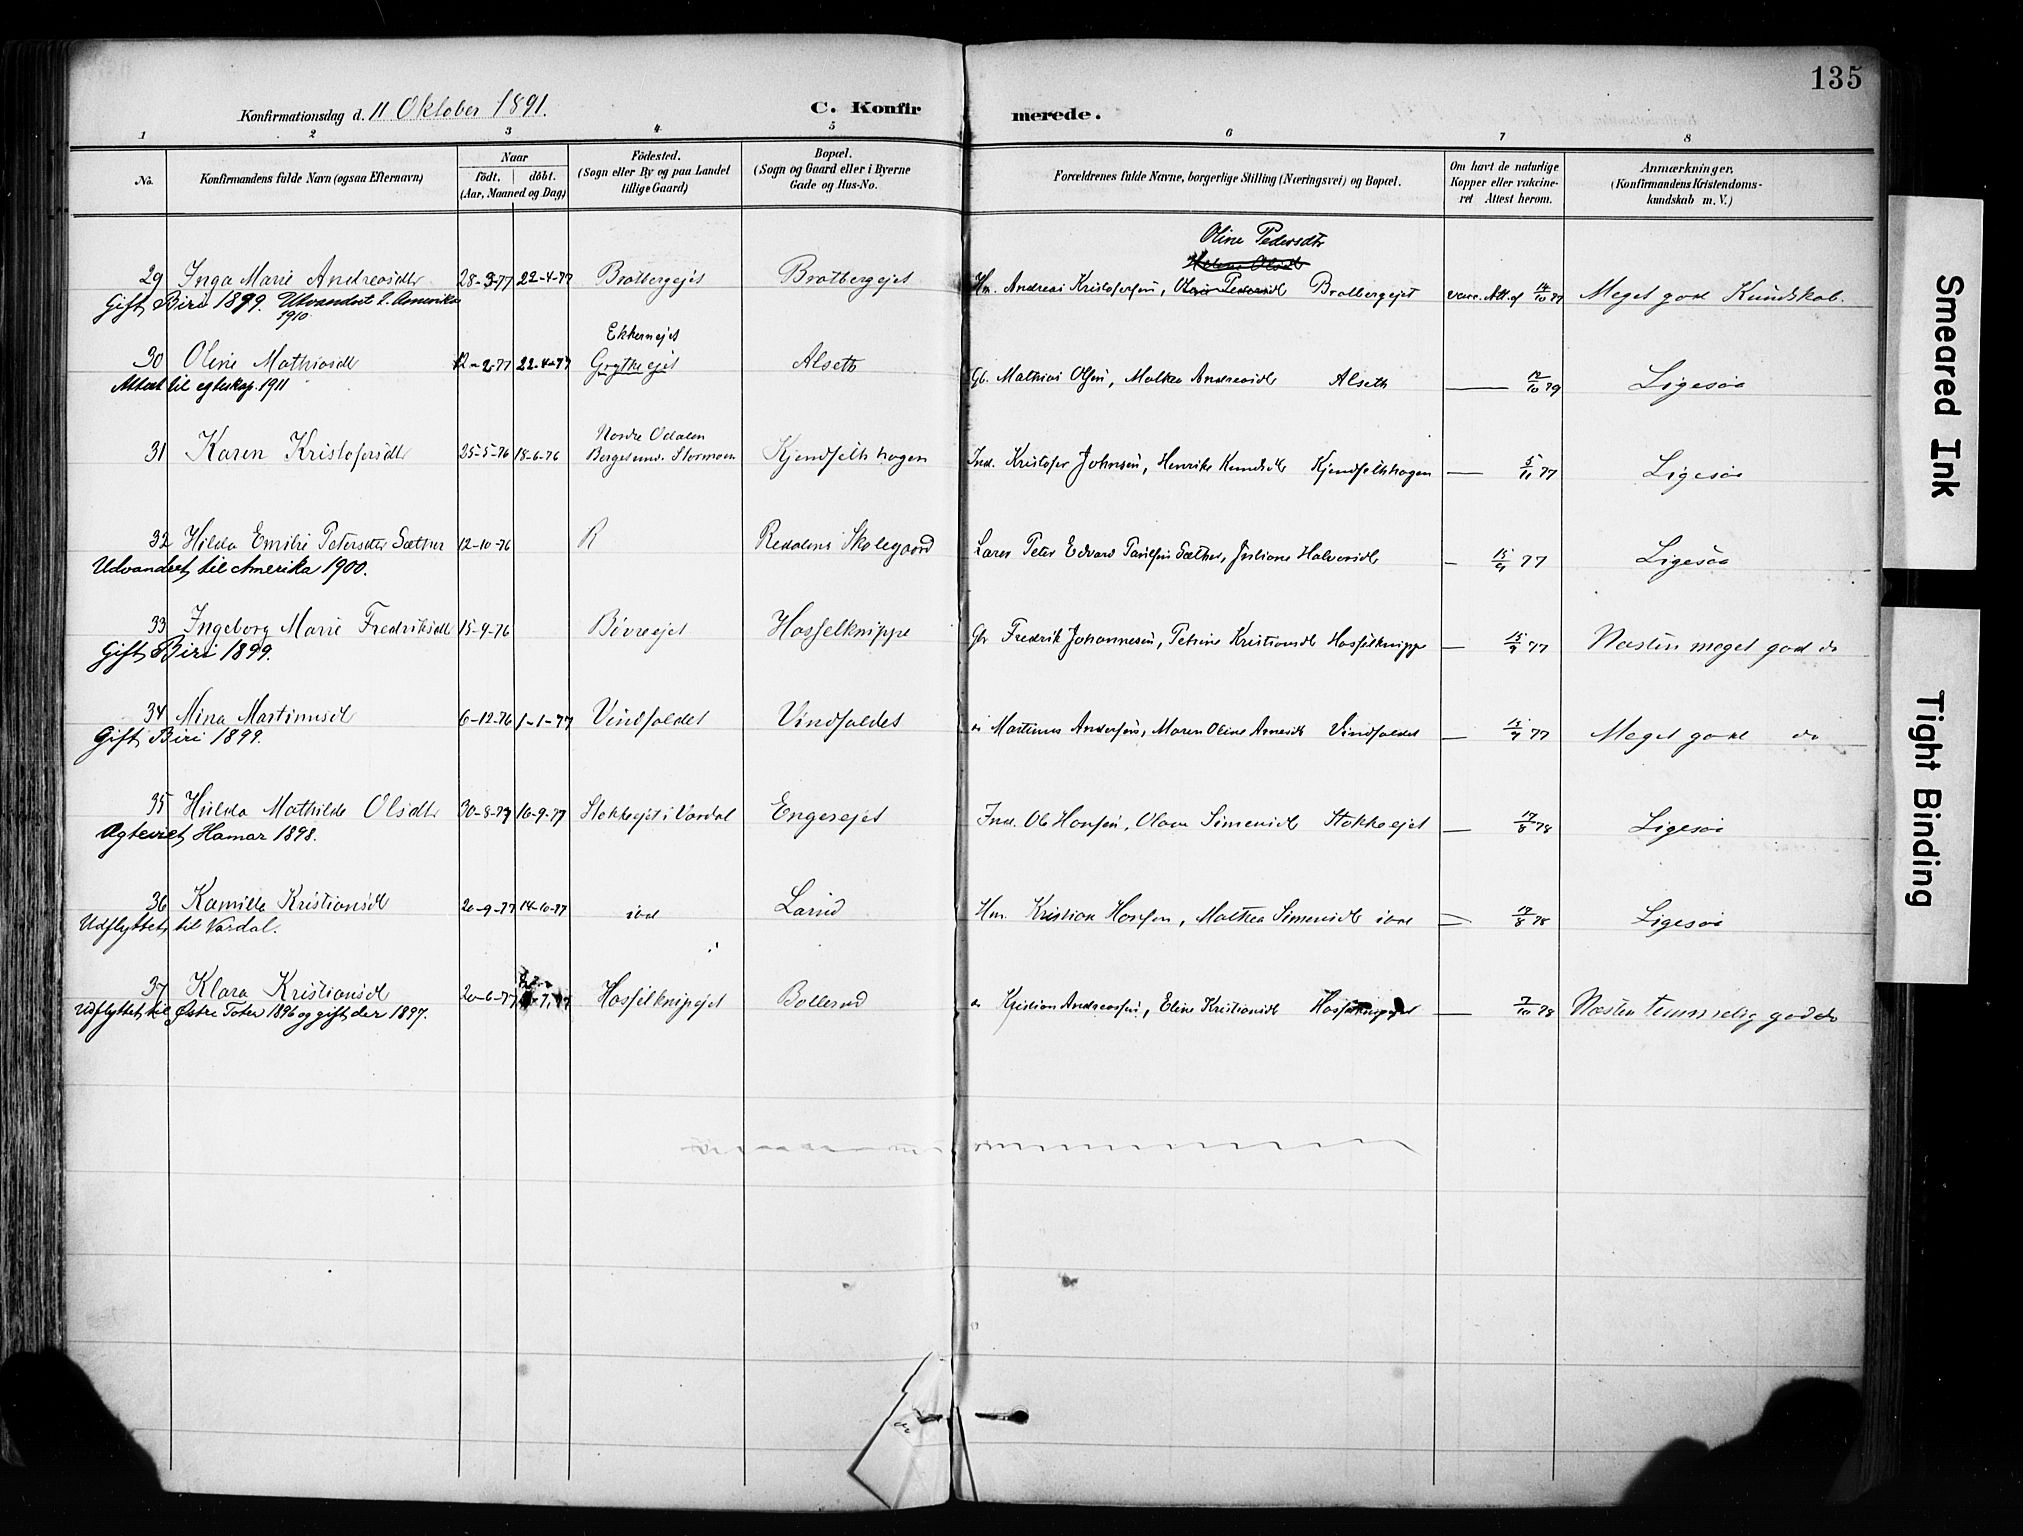 135
Konfirmationsdag d. 11 Oktober 1891.
C. Konfirmerede.
1 2 3 4 5 6 7 8
No.
Konfirmandens fulde Navn (ogsaa Efternavn)
Naar
födt. döbt.
(Aar, Maaned og Dag)
Födested.
(Sogn eller By og paa Landet
tillige Gaard)
Bopæl.
(Sogn og Gaard eller i Byerne
Gade og Hus-No.
Forældrenes fulde Navne, borgerlige Stilling (Næringsvei) og Bopæl.
Om havt de naturlige
Kopper eller vakcine-
ret Attest herom.
Anmærkninger.
(Konfirmandens Kristendoms-
kundskab m. V.)
Oline Pedersdtr
29 Inga Marie Andreasdtr 28-3-77 22-4-77 Bratbergejet Bratbergejet Hm. Andreas Kristofersen, Bratbergejet vacc. Att. af 14/10 77 Meget god Kundskab.
Gift Biri 1899. Utvandret t. Amerika
1910
Ekkernejet
30 Oline Mathiasdtr 12-2-77 22-4-77 Grytkeejet Alseth Gb. Mathias Olsen, Mathea Andreasdtr Alseth 12/10 79 Ligesaa
Attest til egteskap. 1911
Nordre Odalen
31 Karen Kristofersdtr 25-5-76 18-6-76 Bergesund. Stormoen Kjendselhhagen Ind. Kristofer Johnsen, Henrike Knudsdtr Kjendselhhagen 5/11 77 Ligesaa
32 Hilda Emilie Petersdtr Sæther 12-10-76 R Redalens Skolegaard Lærer Peter Edvard Paulsen Sæther, Juliane Halvorsdtr 15/9 77 Ligesaa
Udvandret til Amerika 1900.
33 Ingeborg Marie Fredriksdtr 15-9-76 Bövreejet Hasselknippe Gb. Fredrik Johannesen, Petrine Kristiansdtr Hasselknippe 15/9 77 Næsten meget god do
Gift Biri 1899.
34 Mina Martinusdtr 6-12-76 1-1-77 Vindfaldet Vindfaldet Martinus Andersen, Maren Oline Arnesdtr Vindfaldet 15/9 77 Meget god do
Gift Biri 1899.
35 Hulda Mathilde Olsdtr 30-8-77 16-9-77 Stokkeejet i Vardal Engerejet Ind. Ole Hansen, Olava Simensdtr Stokkeejet 17/8 78 Ligesaa
Ægteviet Hamar 1898.
36 Kamilla Kristiansdtr 20-9-77 14-10-77 ibd Larud Hm. Kristian Hansen, Mathea Simensdtr ibd 17/8 78 Ligesaa
Udflyttet til Vardal.
37 Klara Kristiansdtr 20-6-77 Hasselknipejet Bollerud Kristian Andreassen, Eline Kristiansdtr Hasselknipejet 7/10 78 Næsten temmelig god do
Udflyttet til Østre Toten 1896 og gift der 1897.
Smeared Ink
Tight Binding